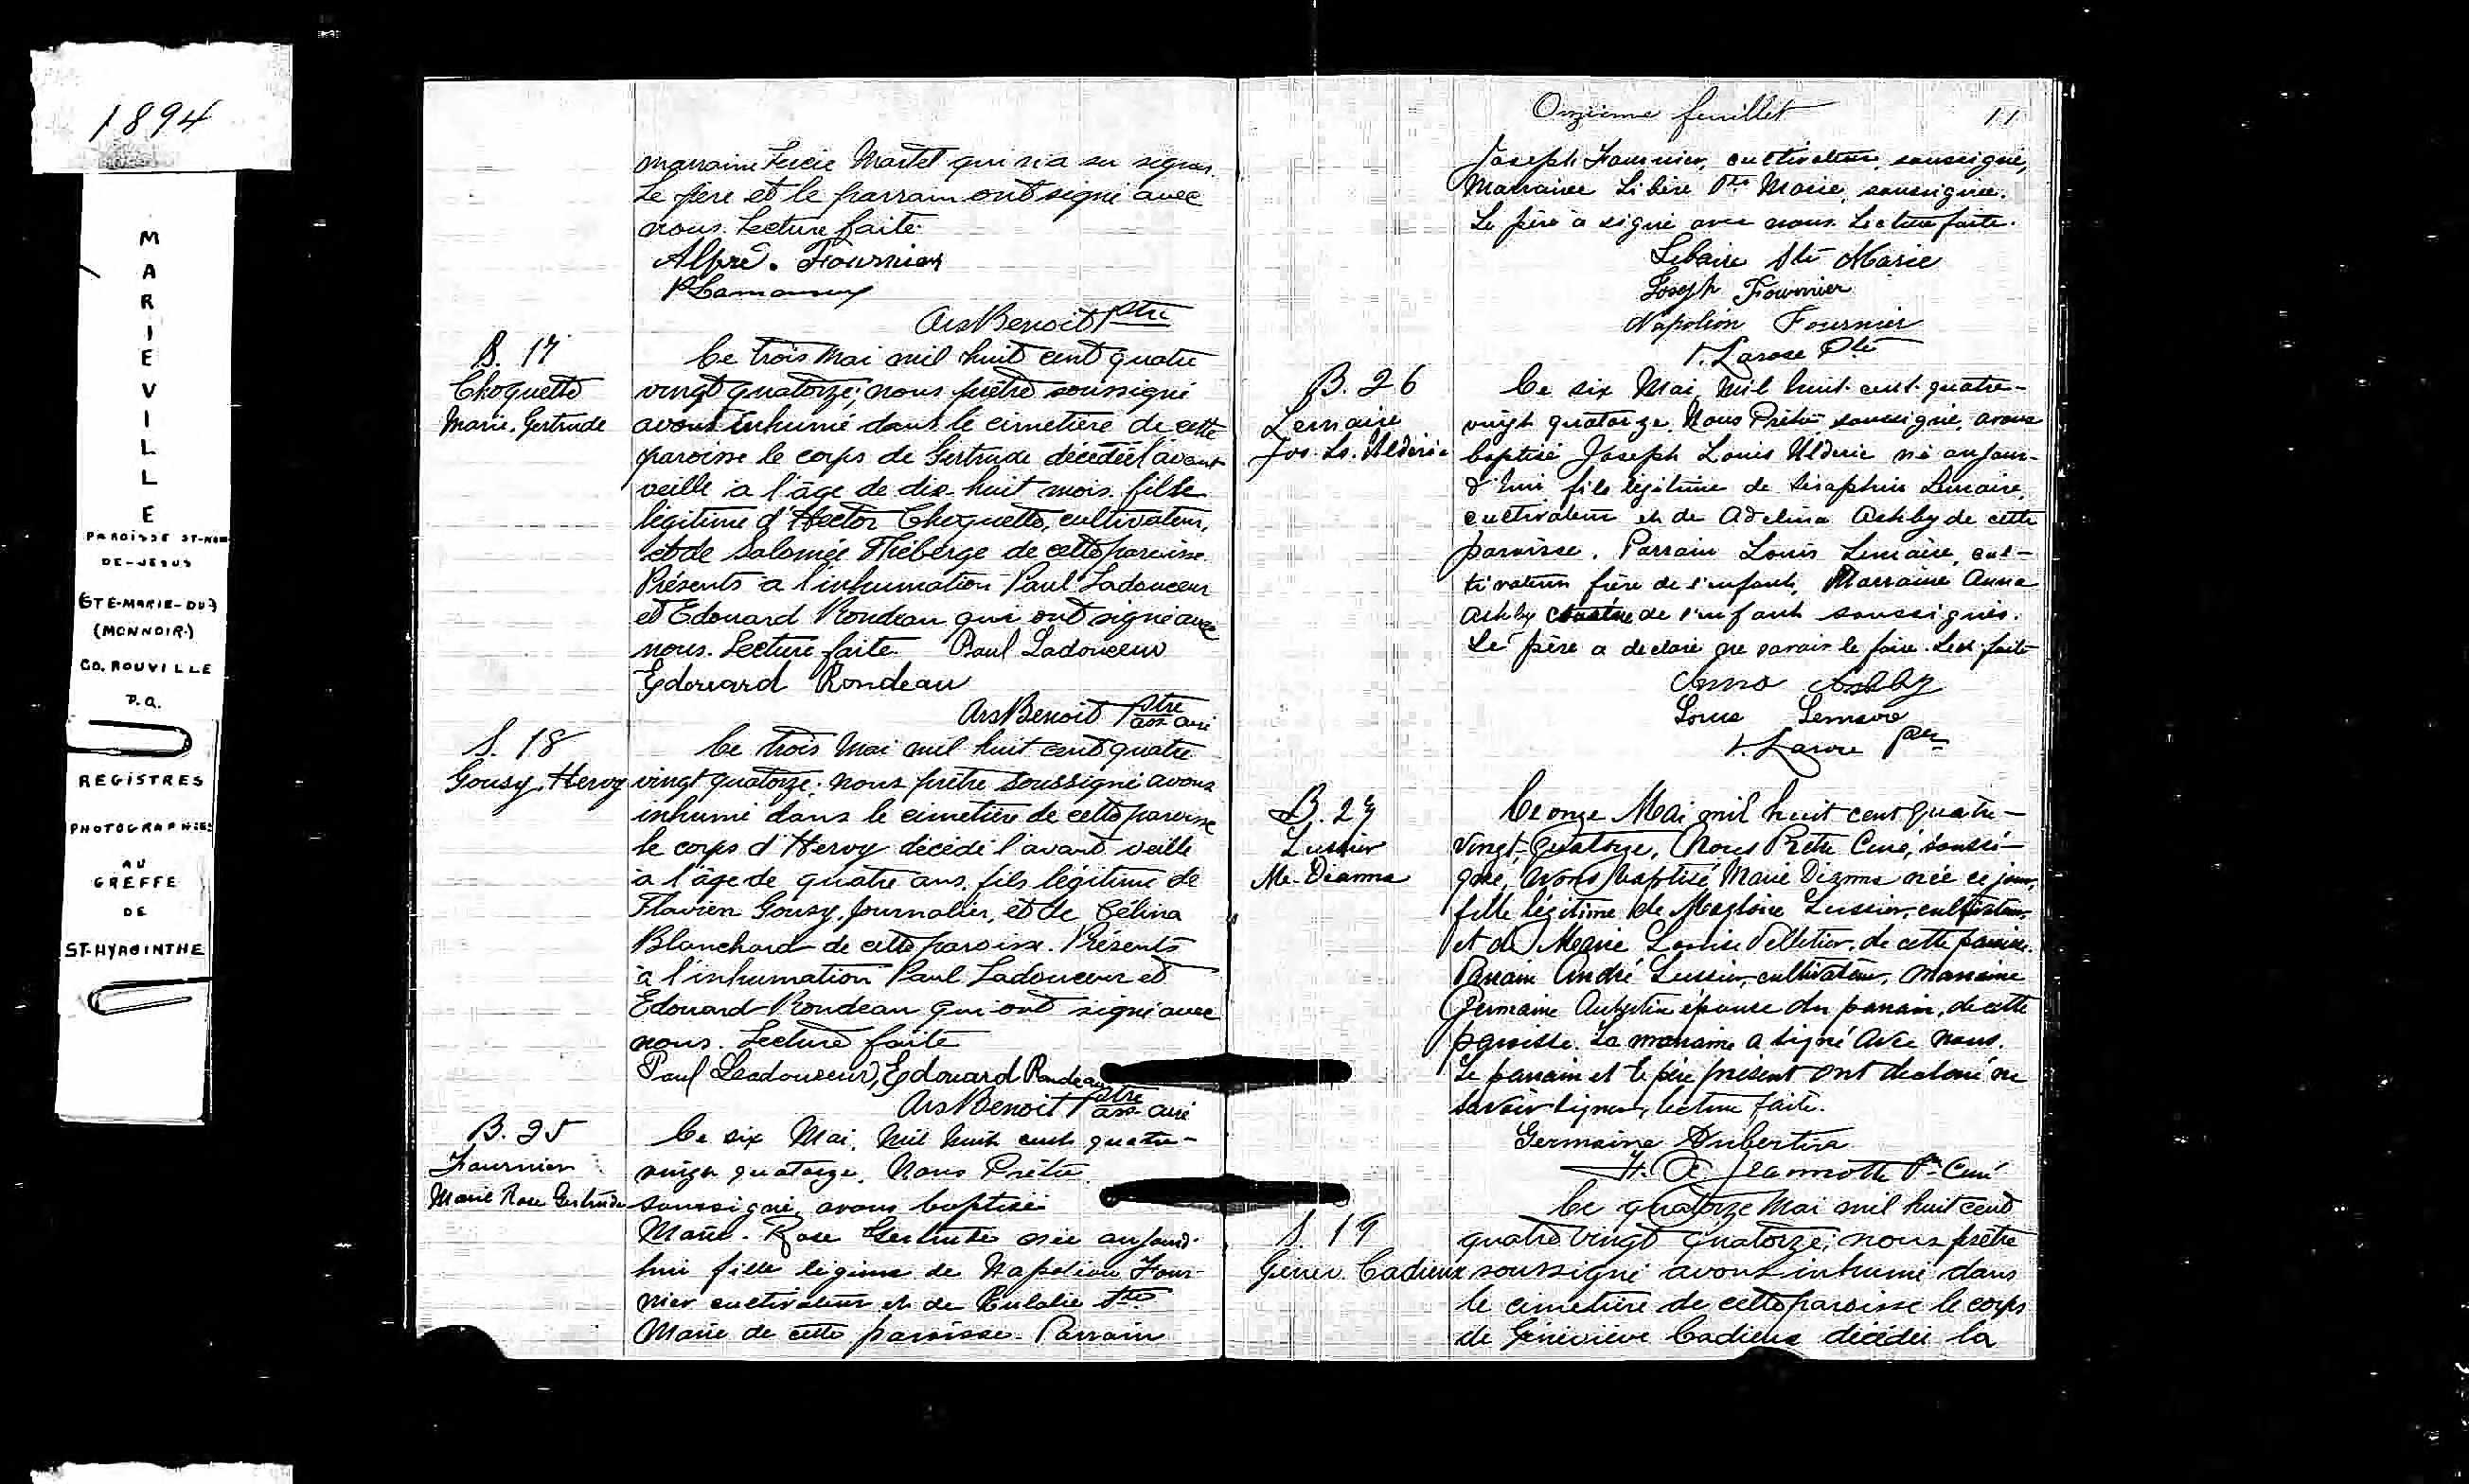 1894
MARIEVILLE
PAROISSE ST-NOM
DE-JESUS
(STE-MARIE-DU)
(MONNOIR.)
CO. ROUVILLE
P.Q.
REGISTRES
PHOTOGRAPHIES
AU
GREFFE
DE
ST-HYACINTHE
marraine Lucie Martel qui n'a su signer.
Le père et le parrain ont signé avec
nous. Lecture faite.
Alfred. Fournier
Ars Benoit Ptre
B. 17
Choquette
Marie. Gertrude
Ce trois Mai mil huit cent quatre
vingt quatorze; nous prêtre soussigné
avons inhumé dans le cimetière de cette
paroisse le corps de Gertrude décédée l'avant
veille à l'âge de dix-huit mois. fille
légitime d'Hector Choquette, cultivateur,
et de Salomée Théberge de cette paroisse.
Présents à l'inhumation Paul Ladouceur
et Edouard Rondeau qui ont signé avec
nous. Lecture faite. Paul Ladouceur
Edouard Rondeau
Ars Benoit Ptre
ass curé
S. 18
Gousy. Hervy
Ce trois Mai mil huit cent quatre
vingt quatorze; nous prêtre soussigné avons
inhumé dans le cimetière de cette paroisse
le corps d'Hervy décédé l'avant veille
à l'âge de quatre ans, fils légitime de
Flavien Gousy, journalier, et de Célina
Blanchard de cette paroisse. Présents
à l'inhumation Paul Ladouceur et
Edouard Rondeau qui ont signé avec
nous. Lecture faite
Paul Ladouceur, Edouard Rondeau
Ars Benoit Ptre
ass curé
B. 25
Fournier
Marie Rose Gertrude
Ce six Mai, Mil huit cent quatre-
vingt quatorze, Nous Prêtre
soussigné, avons baptisé
Marie-Rose Gertrude née aujourd'
hui fille légime de Napoléon Four-
nier cultivateur et de Eulalie Ste
Marie de cette paroisse. Parrain
Onzième feuillet 11
Joseph Fournier, cultivateur, soussigné,
Marraine Libère Ste Marie, soussignée.
Le père a signé avec nous. Lecture faite.
Libaire Ste Marie
Joseph Fournier
Napoléon Fournier
Larose Ptre
B. 26
Lemaire
Jos. Ls. Ulderic
Ce six Mai, Mil huit cent quatre-
vingt quatorze, Nous Prêtre soussigné, avons
baptisé Joseph Louis Ulderic né aujour-
d'hui fils légitime de Séraphin Lemaire,
cultivateur et de Adelina Ashby de cette
paroisse. Parrain Louis Lemaire, cul-
tivateur frère de l'enfant, Marraine Anna
Ashby de l'enfant soussignés.
Le père a déclaré ne savoir le faire. Lect. faite
Anna Ashby
Louis Lemaire
Larose Ptre
B. 27
Lussier
Me-Dianna
Ce onze Mai mil huit cent quatre-
vingt-quatorze, Nous Prêtre Curé, soussi-
gné, avons baptisé Marie Dianna née ce jour,
fille légitime de Magloire Lussier, cultivateur
et de Marie Louise Pelletier, de cette paroisse.
Parrain André Lussier, cultivateur, marraine
Germaine Aubertin épouse du parrain, de cette
paroisse. La marraine a signé avec nous.
Le parrain et le père présent ont déclaré ne
savoir signer, lecture faite.
Germaine Aubertin
Jeannotte Ptre Curé
S. 19
Genev. Cadieux
Ce quatorze Mai mil huit cent
quatre vingt quatorze; nous prêtre
soussigné avons inhumé dans
le cimetière de cette paroisse le corps
de Géneviève Cadieux décédée la